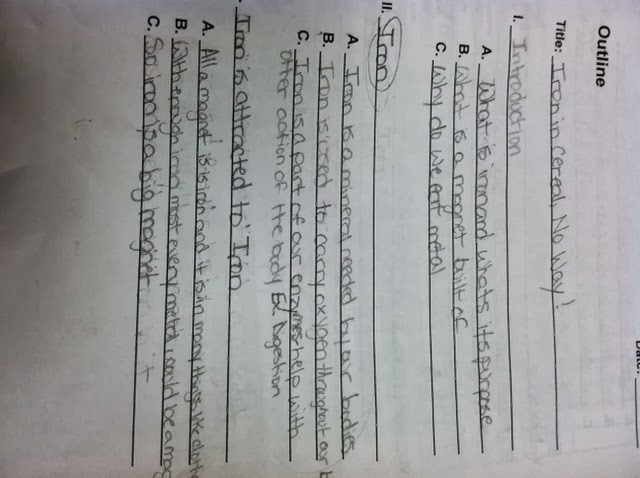 Outline
Title: Iron in Cereal, No Way!
I. Introduction
A. What is iron and whats its purpose
B. What is a magnet built of
C. Why do we eat metal
II. Iron
A. Iron is a mineral needed by our bodies
B. Iron is used to carry oxygen throughout our b
C. Iron is a part of our enzymes help with
other action of the body Ex. Digestion
. Iron is attracted to Iron
A. All a magnet is is iron and it is in many things like
B. With enough iron most every metal could be a mag
C. So iron is a big magnet